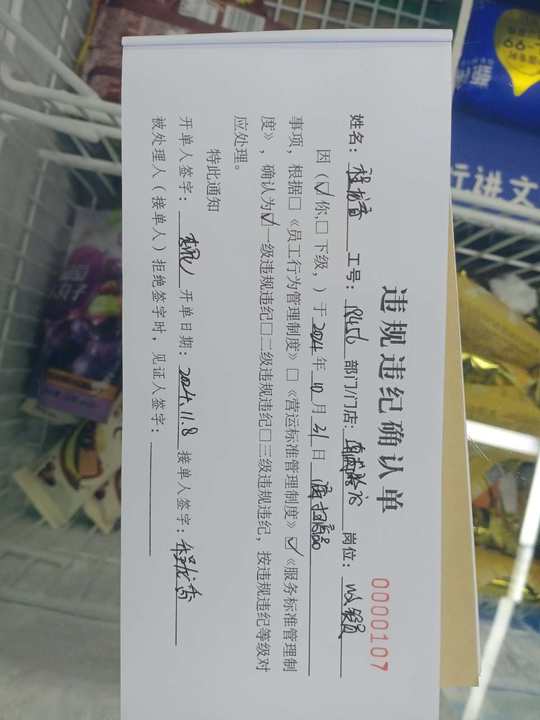 违规违纪确认单
0000107
姓名：程龙香 工号： 部门/门店： 岗位：收银员
因（☑你,☐下级,）于2024年10月31日漏扫商品
事项，根据☐《员工行为管理制度》☐《营运标准管理制度》☑《服务标准管理制
度》，确认为☑一级违规违纪☐二级违规违纪☐三级违规违纪，按违规违纪等级对
应处理。
特此通知
开单人签字： 开单日期：2024.11.8 接单人签字：程龙香
被处理人（接单人）拒绝签字时，见证人签字：
行讲文